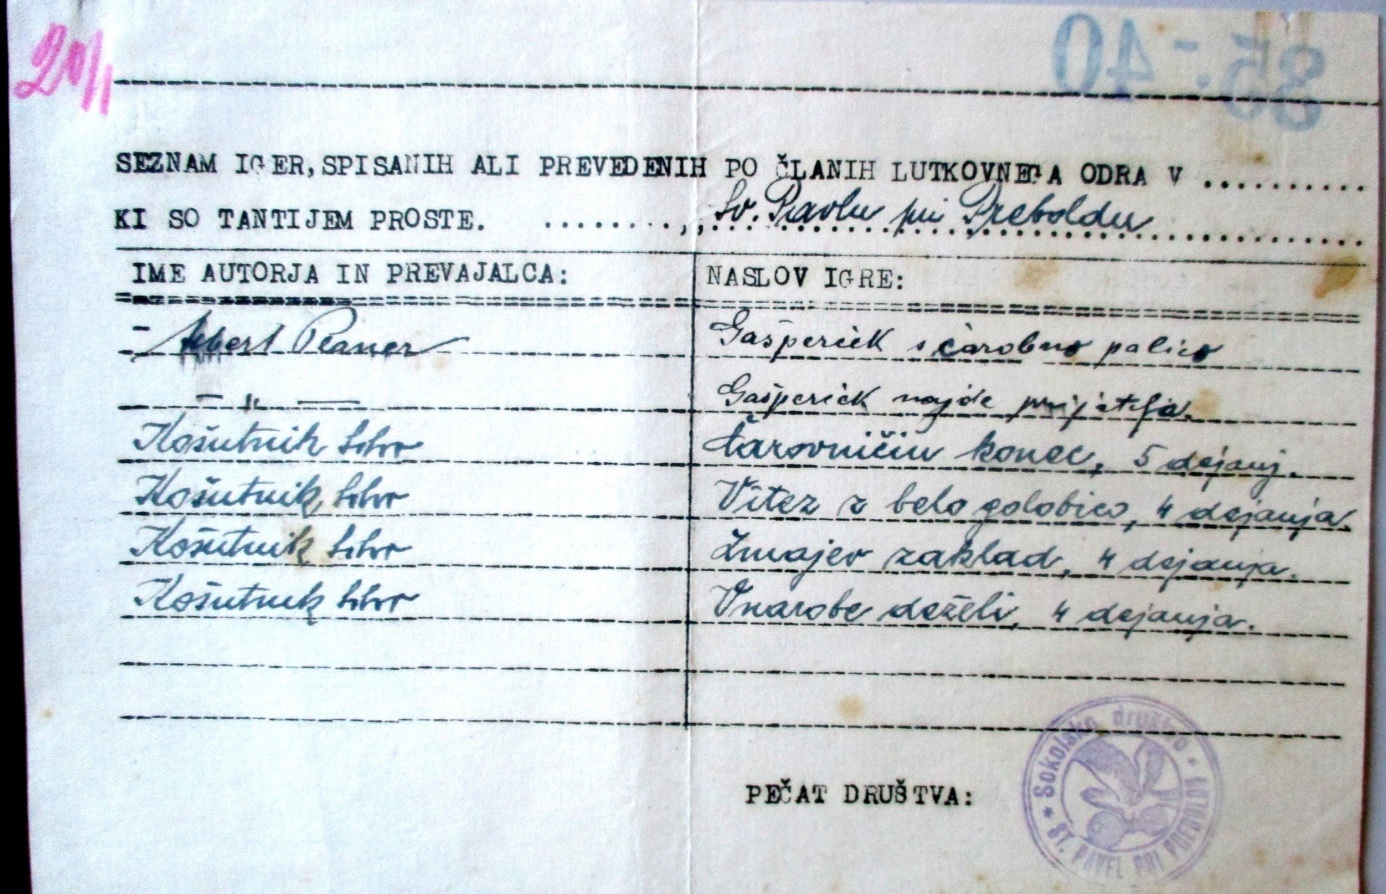 20/1
85 - 40
SEZNAM IGER, SPISANIH ALI PREVEDENIH PO ČLANIH LUTKOVNEGA ODRA V ..........
KI SO TANTIJEM PROSTE. Sv. Pavlu pri Preboldu
IME AUTORJA IN PREVAJALCA: NASLOV IGRE:
Gašperček s čarobno palico
— " — Gašperček najde prijatelja.
Košutnik Silvo Čarovničin konec, 5 dejanj.
Košutnik Silvo Vitez z belo golobico, 4 dejanja.
Košutnik Silvo Zmajev zaklad, 4 dejanja.
Košutnik Silvo V narobe deželi, 4 dejanja.
PEČAT DRUŠTVA:
★ Sokolsko društvo ★
ST. PAVEL PRI PREBOLDU